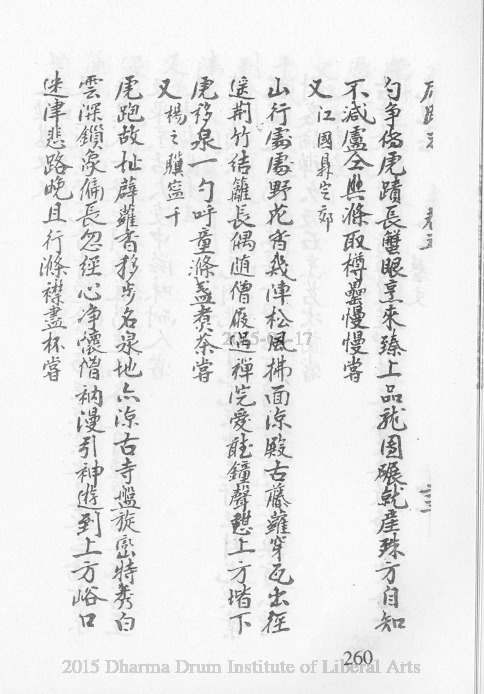 虎跑志 卷五 三
勺爭傳虎蹟長蟹眼烹來臻上品龍團碾就產殊方自知
不減盧仝興滌取樽罍慢慢嘗
又 江國鼎 定郊
山行處處野花香幾陣松風拂面涼殿古藤蘿穿瓦出徑
遙荆竹結籬長偶随僧履過禪院愛聽鐘聲憩上方堦下
虎移泉一勺呼童滌盞煮茶嘗
又 楊之驥 寍千
虎跑故址薜蘿香移步名泉地亦涼古寺盤旋巒特秀白
雲深鎖象偏長忽經心净懷僧衲漫引神遊到上方峪口
迷津悲路晚且行滌襟盡杯嘗
2015
-17
260
2015 Dharma Drum Institute of Liberal Arts